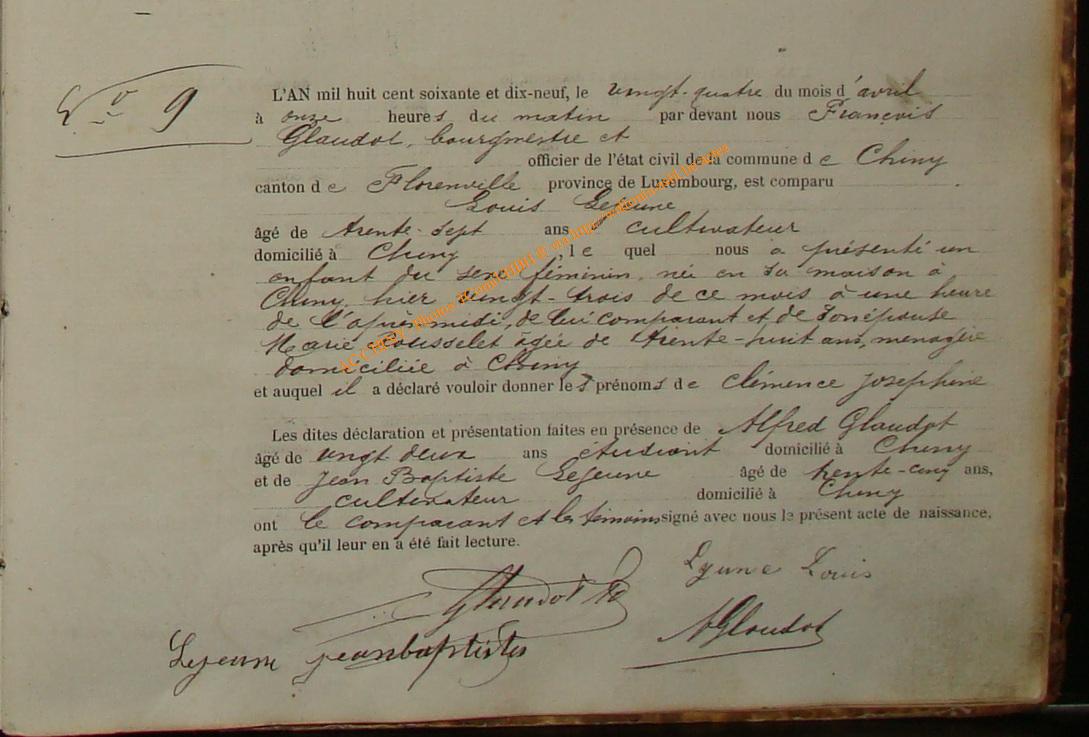 N° 9
L'AN mil huit cent soixante et dix-neuf, le vingt-quatre du mois d'avril
à onze heures du matin par devant nous François
Glaudot, bourgmestre et
officier de l'état civil de la commune de Chiny
canton de Florenville province de Luxembourg, est comparu
Louis Lejeune
âgé de trente-sept ans, cultivateur
domicilié à Chiny, le quel nous a présenté un
enfant du sexe féminin, née en sa maison à
Chiny, hier vingt-trois de ce mois à une heure
de l'après midi, de lui comparant et de son épouse
Marie Pousselet âgée de trente-huit ans, menagère
domiciliée à Chiny
et auquel il a déclaré vouloir donner les prénoms de Clémence Josephine
Les dites déclaration et présentation faites en présence de Alfred Glaudot
âgé de vingt deux ans étudiant domicilié à Chiny
et de Jean Baptiste Lejeune âgé de trente-cinq ans,
cultivateur domicilié à Chiny
ont le comparant et les témoins signé avec nous le présent acte de naissance,
après qu'il leur en a été fait lecture.
Lejeune Louis
Glaudot
Lejeune jeanbaptiste
AGlaudot